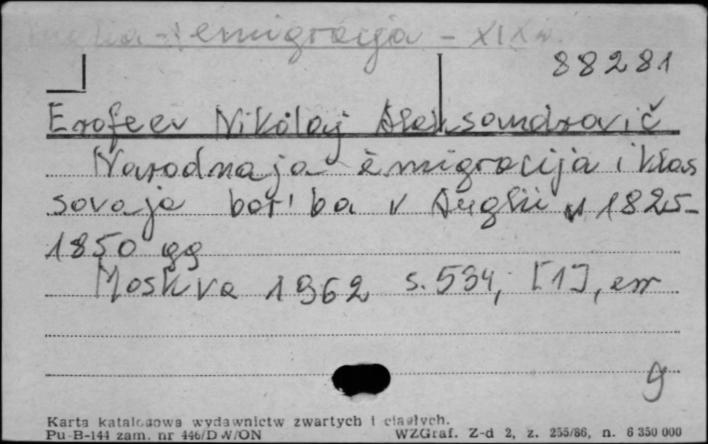 Anglia - emigracja - XIX w.
88281
Erofeev Nikolaj Aleksandrovič
Narodnaja èmigracija i klas
sovaja bor'ba v Anglii v 1825-
1850 gg
Moskva 1962 s. 534, [1], err
g
Karta katalogowa wydawnictw zwartych i ciągłych.
Pu-B-144 zam. nr 446/D W/ON WZGraf. Z-d 2, z. 255/86, n. 6 350 000